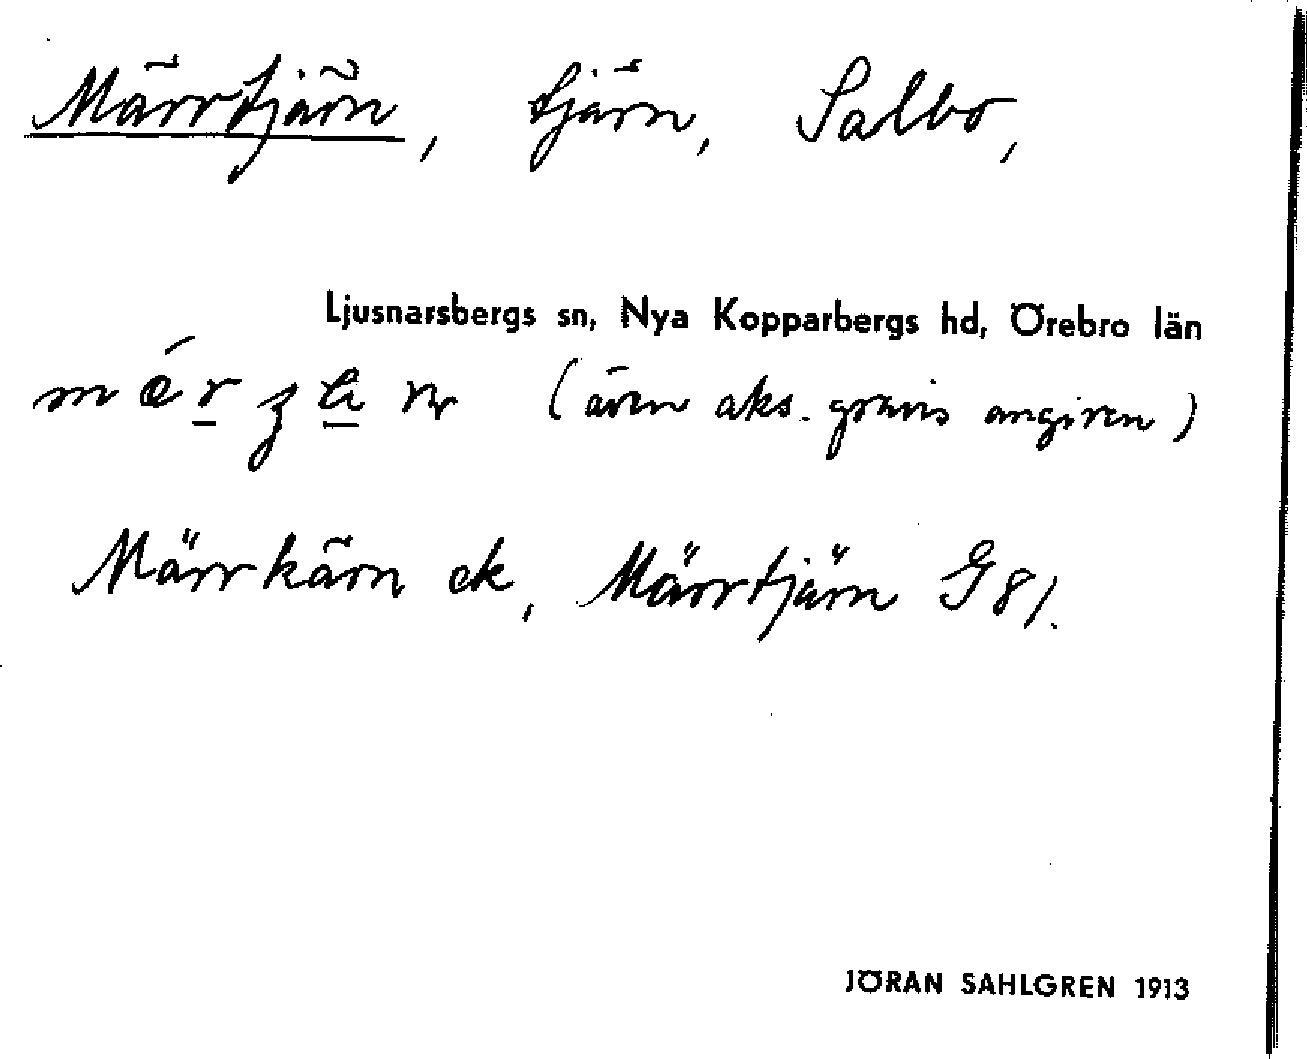 Märrtjärn, tjärn, Salbo,
Ljusnarsbergs sn, Nya Kopparbergs hd, Örebro län
(även aks. gravis angiven)
Märrkärn ek, Märrtjärn G81.
JÖRAN SAHLGREN 1913